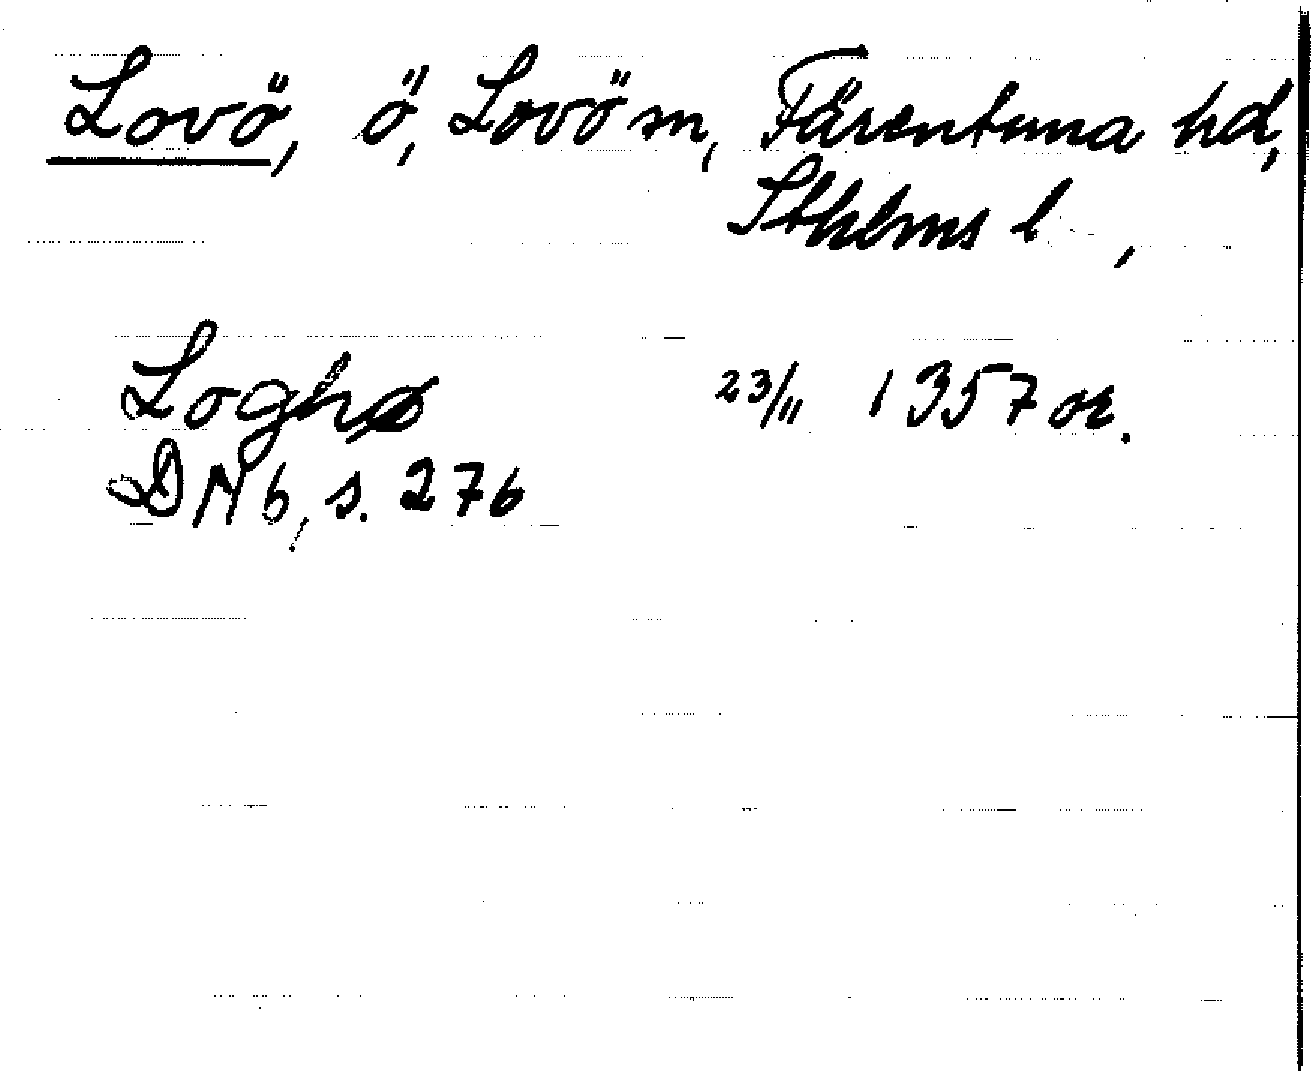 Lovö, ö, Lovö sn, Färentuna hd,
Sthlms l,
Loghø 23/11 1357 or.
DN 6, s. 276